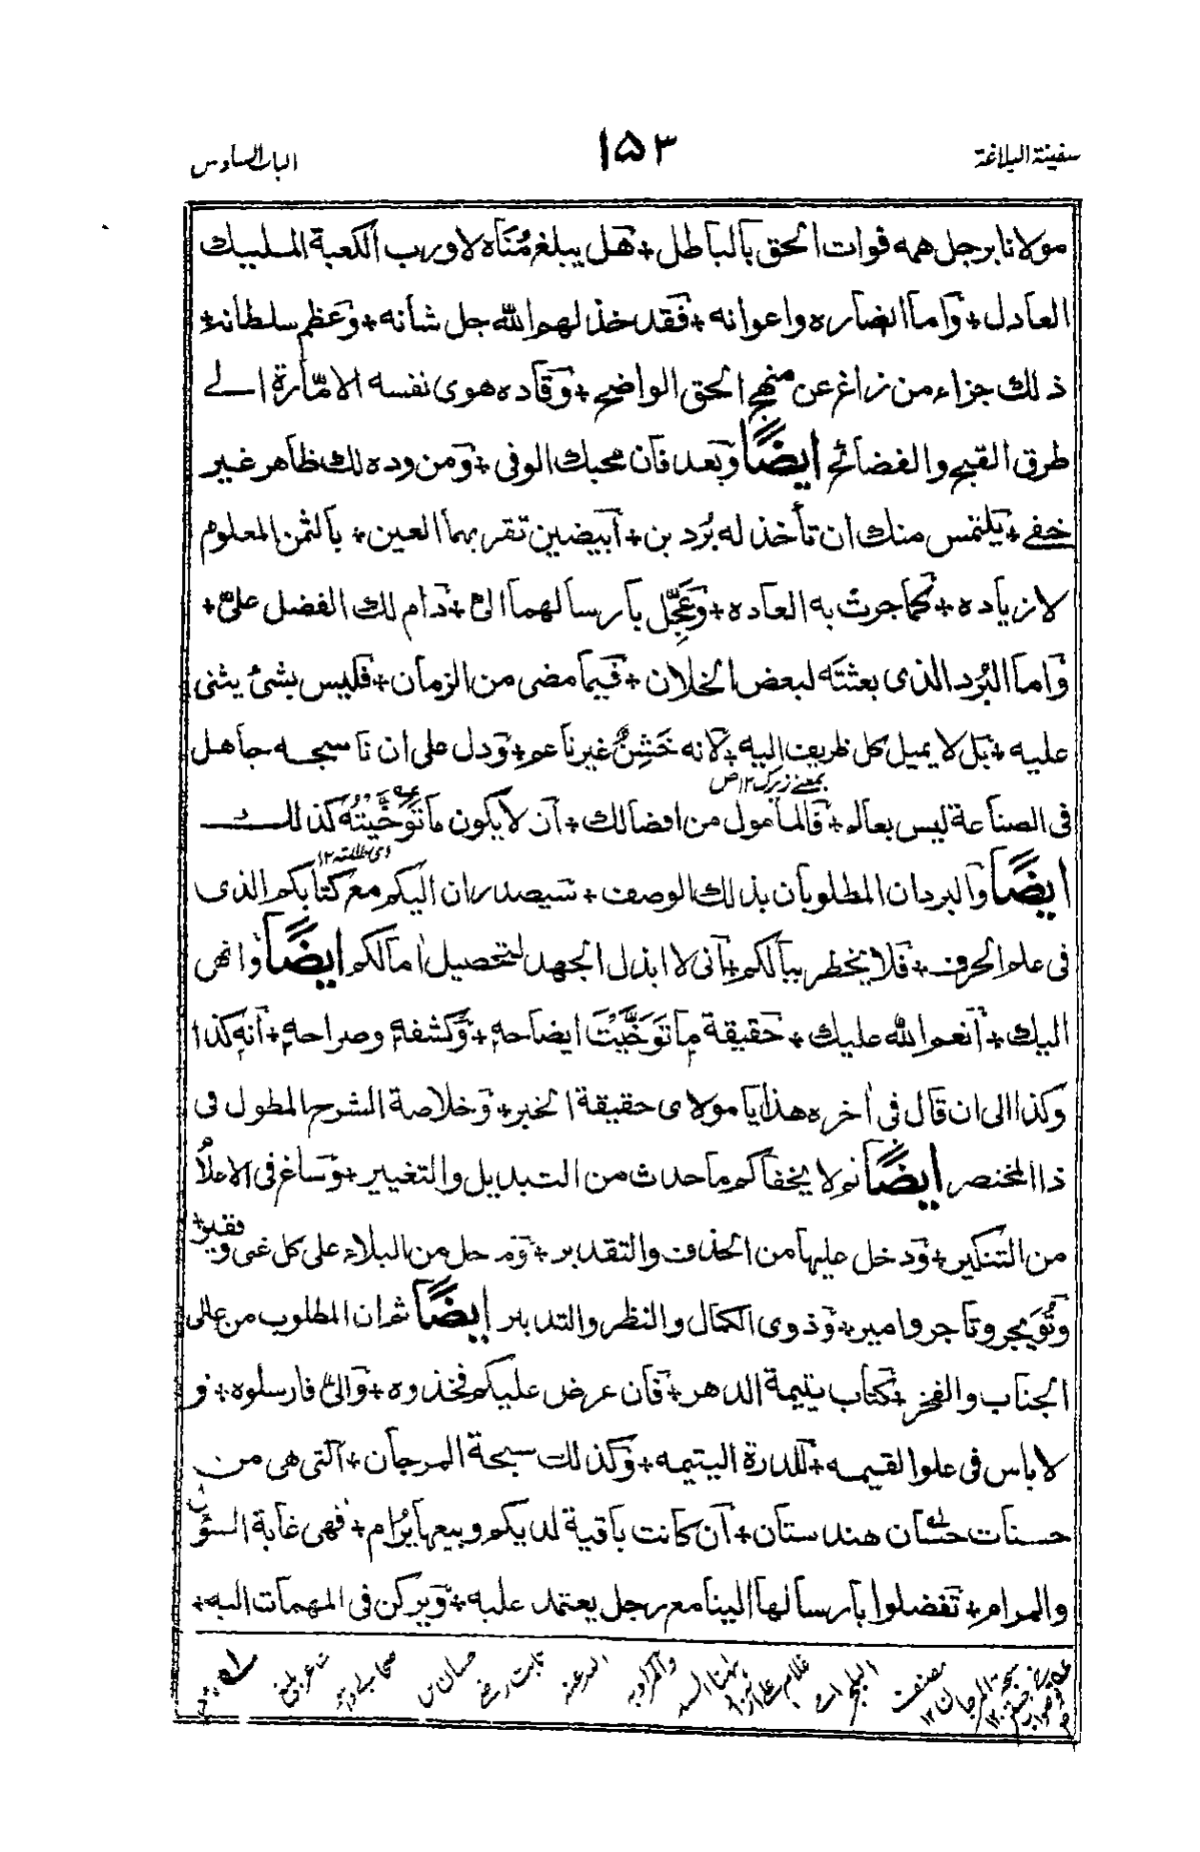 سفينة البلاغة
١٥٣
الباب السادس
مولانا برجل همه فوات الحق بالباطل + هل يبلغ مُناه لا ورب الكعبة المليك
العادل + واما انصاره واعوانه + فقد خذلهم الله جل شانه + وعظم سلطانه +
ذلك جزاء من زاغ عن منهج الحق الواضح + وقاده هوى نفسه الامّارة الے
طرق القبح والفضائح ايضًا وبعد فان محبك الوفى + ومن وده لك ظاهر غير
خفے + يلتمس منك ان تأخذ له بُرد بن + ابيضين تقر بهما العين + بالثمن المعلوم
لا زياده + كما جرتْ به العاده + وعَجِّل بارسالهما الىّ + دام لك الفضل علىّ +
واما البُرد الذى بعثتَه لبعض الخلان + فيما مضى من الزمان + فليس بشئ يثنى
عليه + بل لا يميل كل ظريف اليه + لانه خَشِنٌ غير ناعم + ودل على ان ناسجه جاهل
بمعنے زيرك ١٢ ص
فى الصناعة ليس بعالم + فالمأمول من افضالك + ان لا يكون ما تَوَخَّيْتُهُ كذلك
اى طلبته ١٢
ايضًا والبردان المطلوبان بذلك الوصف + سيصدران اليكم مع كتابكم الذى
فى علم الحرف + فلا يخطر ببالكم + انى لا ابذل الجهد لتحصيل امالكم ايضًا وانهى
اليك + انعم الله عليك + حقيقة ما تَوَخَّيْتَ ايضاحه + وكشفه وصراحه + انه كذا
وكذا الى ان قال فى اخره هذا يا مولاى حقيقة الخبر + وخلاصة الشرح المطول فى
ذا المختصر ايضًا ثم لا يخفاكم ما حدث من التبديل والتغيير + وساغ فى الاعلام
من التنكير + ودخل عليها من الحذف والتقدير + وما حل من البلاء على كل غنى وفقير +
وتُوَيجر وتاجر وامير + وذوى الكمال والنظر والتدبير ايضًا ثم ان المطلوب من عالى
الجناب والفخر + كتاب يتيمة الدهر + فان عرض عليكم فخذوه + والىّ فارسلوه + و
لا باس فى علو القيمه + للدرة اليتيمه + وكذلك سبحة المرجان + التى هى من
حسنات حسّان هندستان + ان كانت باقية لديكم وبيعها يُرام + فهى غاية السؤل
والمرام + تفضلوا بارسالها الينا مع رجل يعتمد عليه + ويركن فى المهمات اليه +
سبحة المرجان ١٢
مصنفت
غلام علے